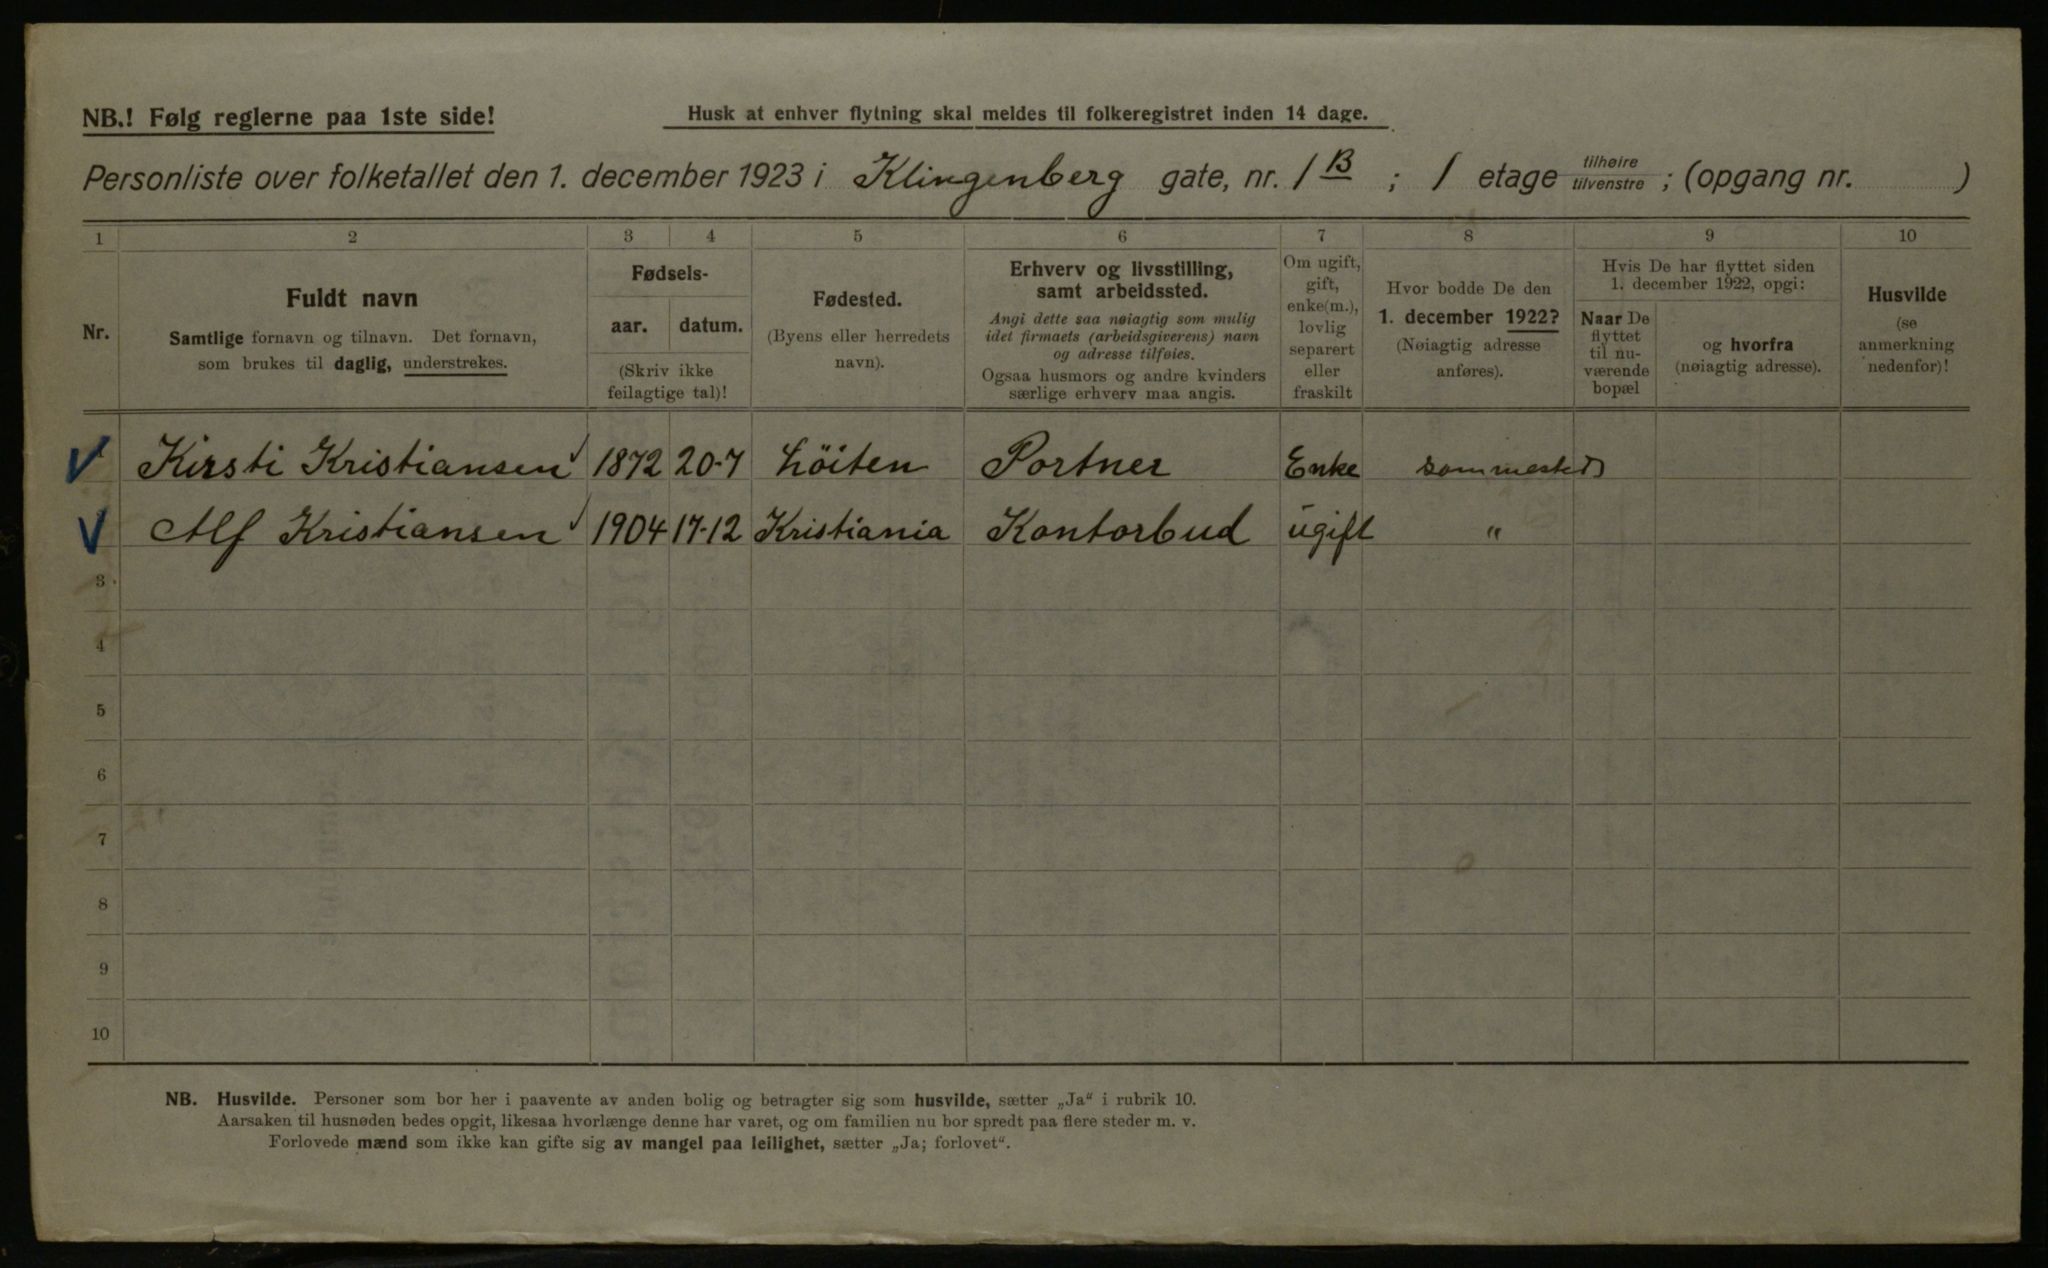 NB.! Følg reglerne paa 1ste side!
Husk at enhver flytning skal meldes til folkeregistret inden 14 dage.
Personliste over folketallet den 1. december 1923 i Klingenberg gate, nr. 1 B ; 1 etage tilhøire tilvenstre ; (opgang nr. )
1 2 3 4 5 6 7 8 9 10
Nr.
Fuldt navn
Samtlige fornavn og tilnavn. Det fornavn,
som brukes til daglig, understrekes.
Fødsels-
aar. datum.
(Skriv ikke
feilagtige tal)!
Fødested.
(Byens eller herredets
navn).
Erhverv og livsstilling,
samt arbeidssted.
Angi dette saa nøiagtig som mulig
idet firmaets (arbeidsgiverens) navn
og adresse tilføies.
Ogsaa husmors og andre kvinders
særlige erhverv maa angis.
Om ugift,
gift,
enke(m.),
lovlig
separert
eller
fraskilt
Hvor bodde De den
1. december 1922?
(Nøiagtig adresse
anføres).
Hvis De har flyttet siden
1. december 1922, opgi:
Naar De
flyttet
til nu-
værende
bopæl
og hvorfra
(nøiagtig adresse).
Husvilde
(se
anmerkning
nedenfor)!
Kirsti Kristiansen 1872 20-7 Löiten Portner Enke sammested
Alf Kristiansen 1904 17-12 Kristiania Kontorbud ugift "
3
4
5
6
7
8
9
10
NB. Husvilde. Personer som bor her i paavente av anden bolig og betragter sig som husvilde, sætter „Ja“ i rubrik 10.
Aarsaken til husnøden bedes opgit, likesaa hvorlænge denne har varet, og om familien nu bor spredt paa flere steder m. v.
Forlovede mænd som ikke kan gifte sig av mangel paa leilighet, sætter „Ja; forlovet“.